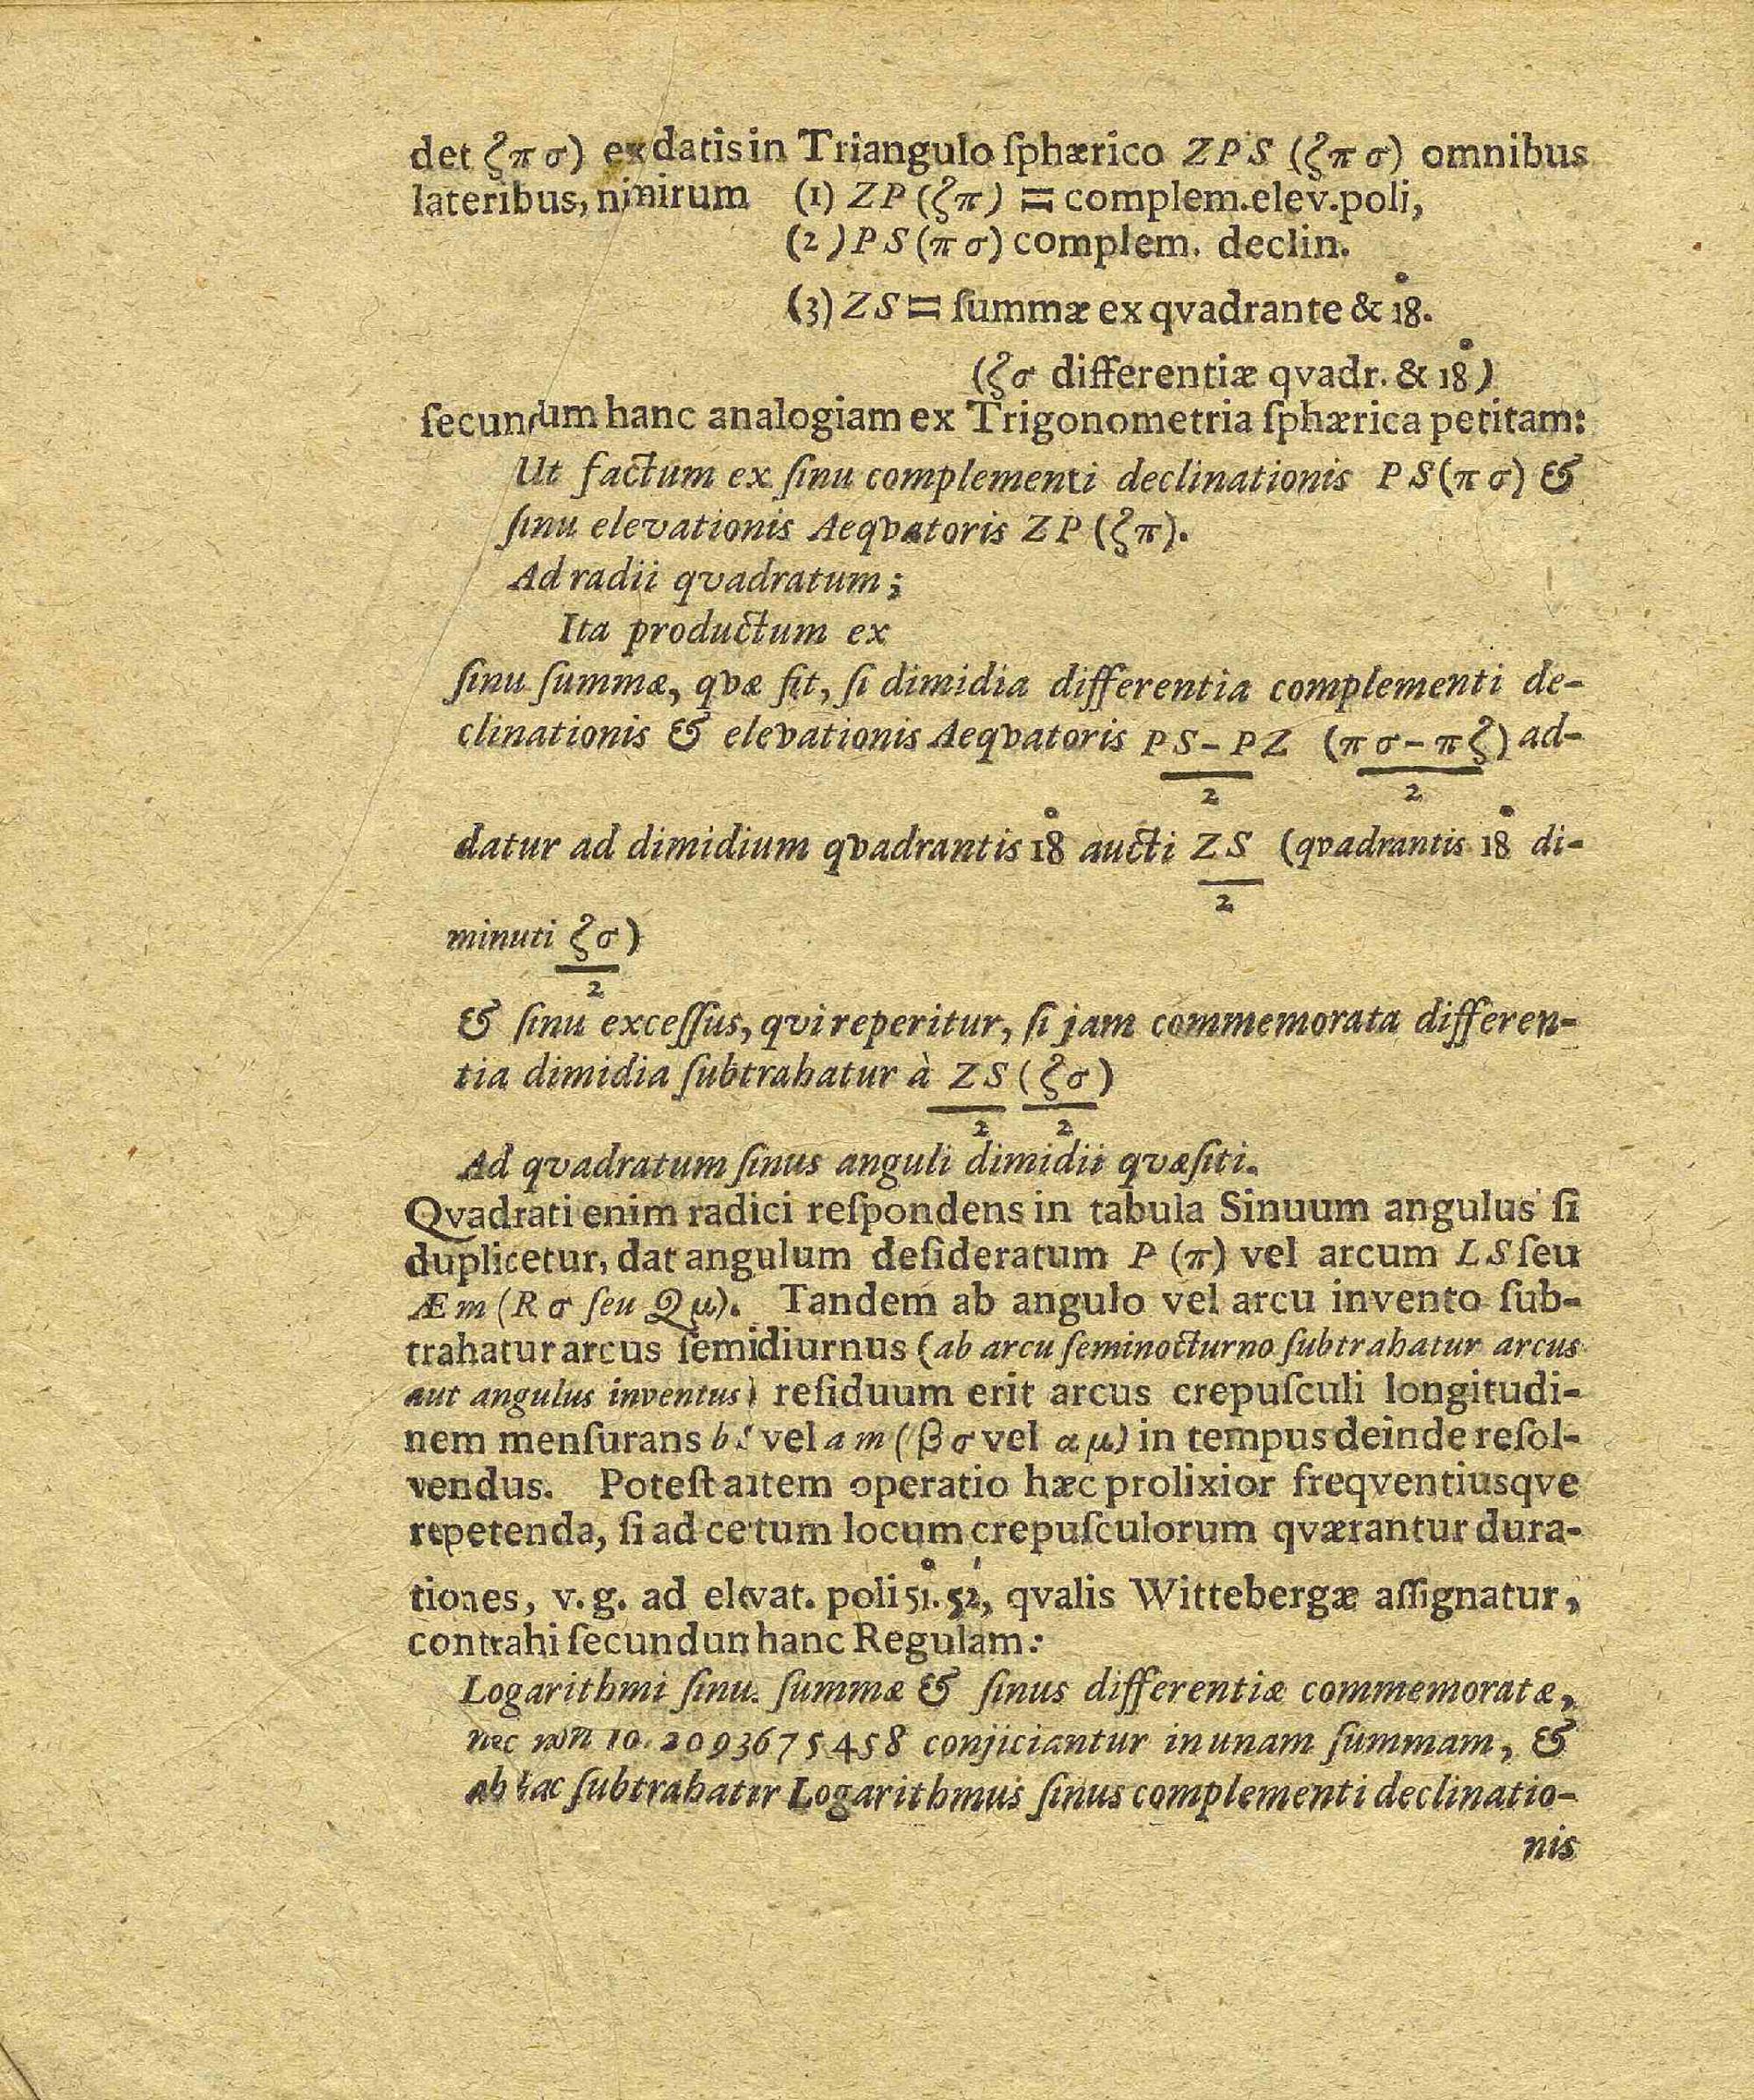 det ζπσ) ex datis in Triangulo ſphærico ZPS (ζπσ) omnibus
lateribus, nimirum (1) ZP (ζπ) = complem. elev. poli,
(2) PS (πσ) complem. declin.
(3) ZS = ſummæ ex qvadrante & 18°.
(ζσ differentiæ qvadr. & 18°)
ſecundum hanc analogiam ex Trigonometria ſphærica petitam:
Ut factum ex ſinu complementi declinationis PS (πσ) &
ſinu elevationis Aeqvatoris ZP (ζπ).
Ad radii qvadratum;
Ita productum ex
ſinu ſummæ, qvæ fit, ſi dimidia differentia complementi de-
clinationis & elevationis Aeqvatoris PS – PZ (πσ – πζ) ad-
2 2
datur ad dimidium qvadrantis 18° aucti ZS (qvadrantis 18° di-
2
minuti ζσ)
2
& ſinu exceſſus, qvi reperitur, ſi jam commemorata differen-
tia dimidia ſubtrahatur à ZS (ζσ)
2 2
Ad qvadratum ſinus anguli dimidii qvæſiti.
Qvadrati enim radici reſpondens in tabula Sinuum angulus ſi
duplicetur, dat angulum deſideratum P (π) vel arcum LS ſeu
Æm (Rσ ſeu Qμ). Tandem ab angulo vel arcu invento ſub-
trahatur arcus ſemidiurnus (ab arcu ſeminocturno ſubtrahatur arcus
aut angulus inventus) reſiduum erit arcus crepuſculi longitudi-
nem menſurans bS vel am (βσ vel αμ) in tempus deinde reſol-
vendus. Poteſt aitem operatio hæc prolixior freqventiusqve
repetenda, ſi ad cetum locum crepuſculorum qværantur dura-
tiones, v. g. ad elevat. poli 51°. 52', qvalis Wittebergæ aſſignatur,
contrahi ſecundun hanc Regulam:
Logarithmi ſinu. ſummæ & ſinus differentiæ commemoratæ,
nec non 10. 2093675458 conjiciantur in unam ſummam, &
ab hac ſubtrahatur Logarithmus ſinus complementi declinatio-
nis